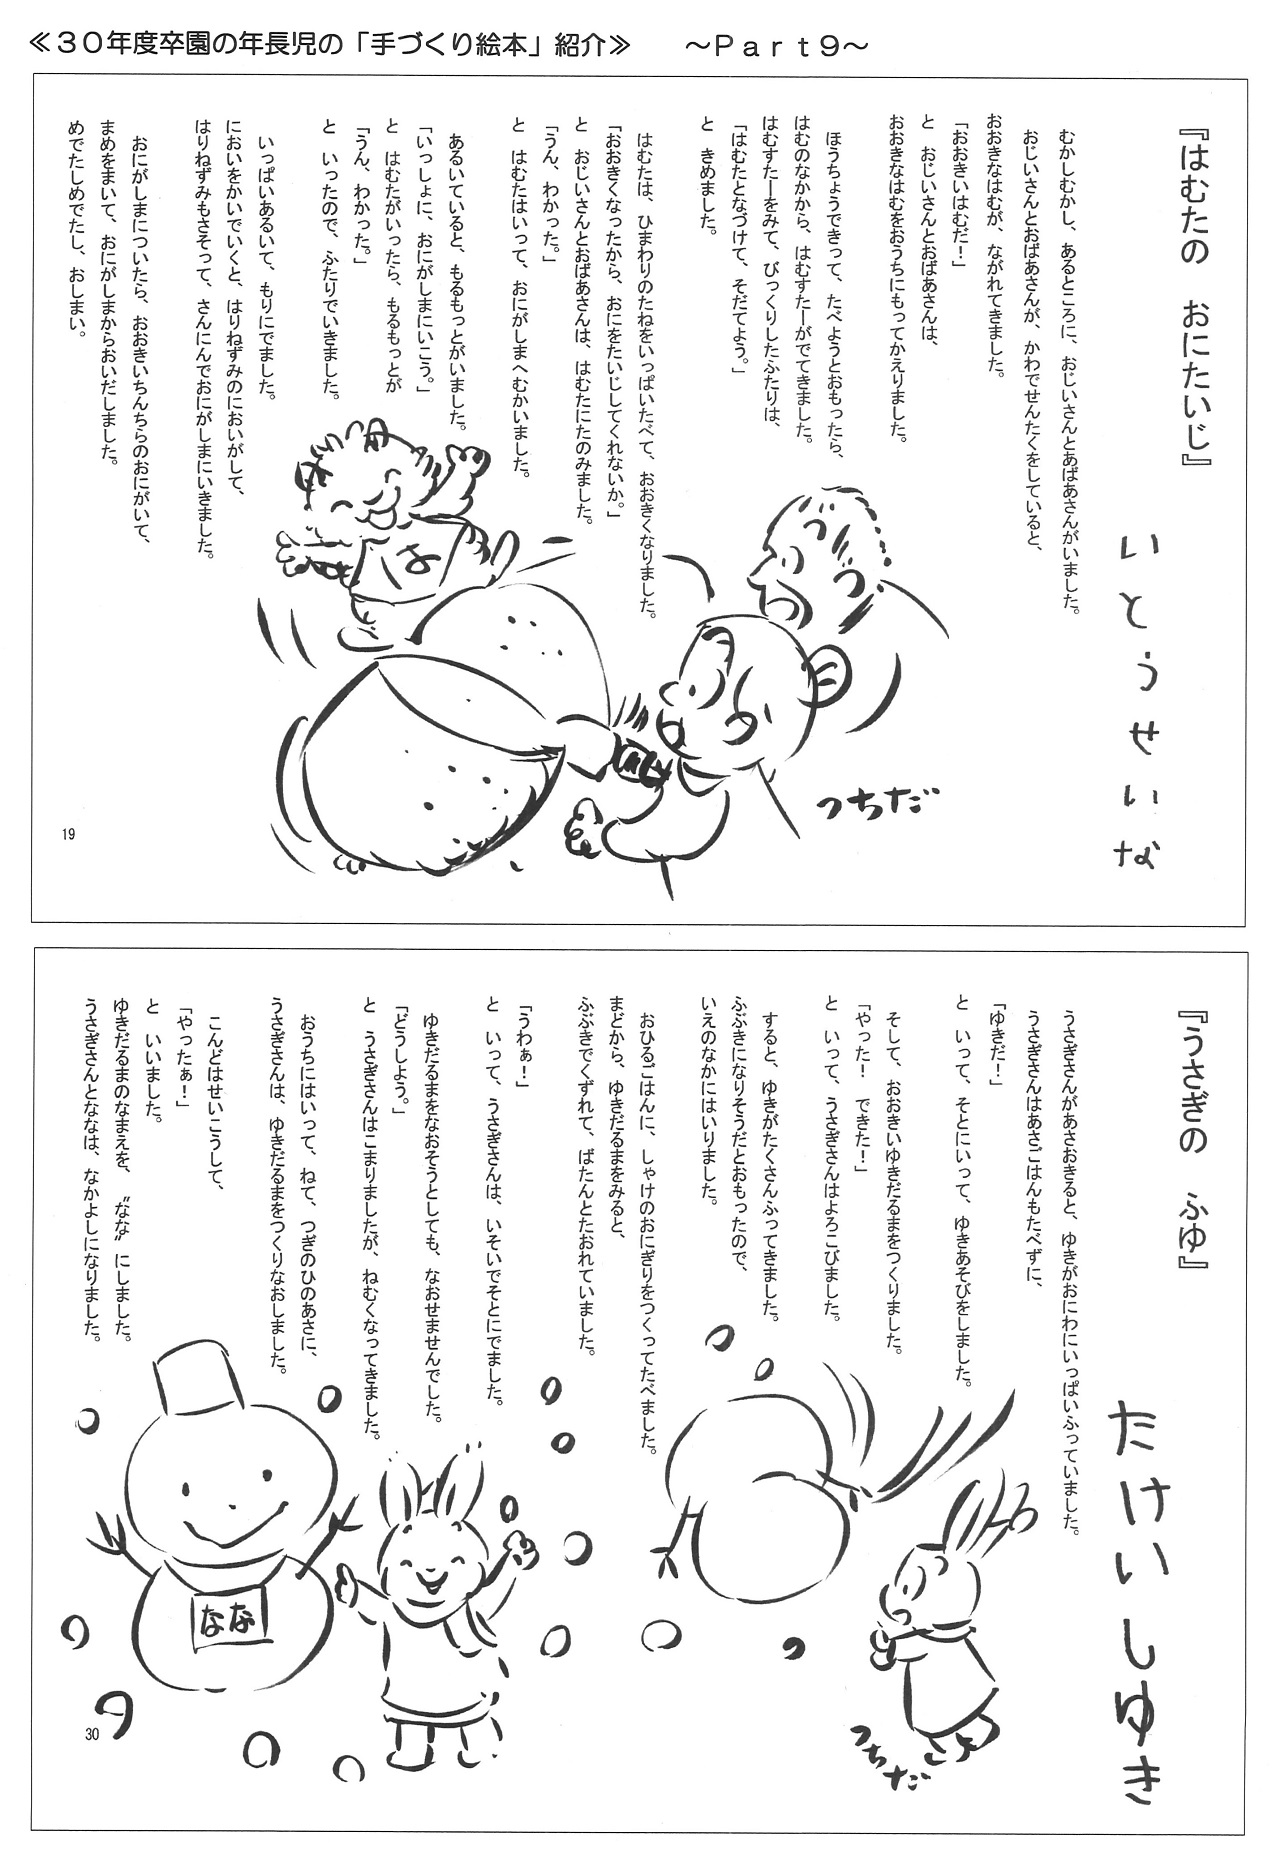 ≪３０年度卒園の年長児の「手づくり絵本」紹介≫　　～Ｐａｒｔ９～
『はむたの　おにたいじ』
いとうせいな
むかしむかし、あるところに、おじいさんとあばあさんがいました。
おじいさんとおばあさんが、かわでせんたくをしていると、
おおきなはむが、ながれてきました。
「おおきいはむだ！」
と　おじいさんとおばあさんは、
おおきなはむをおうちにもってかえりました。
ほうちょうできって、たべようとおもったら、
はむのなかから、はむすたーがでてきました。
はむすたーをみて、びっくりしたふたりは、
「はむたとなづけて、そだてよう。」
と　きめました。
はむたは、ひまわりのたねをいっぱいたべて、おおきくなりました。
「おおきくなったから、おにをたいじしてくれないか。」
と　おじいさんとおばあさんは、はむたにたのみました。
「うん、わかった。」
と　はむたはいって、おにがしまへむかいました。
あるいていると、もるもっとがいました。
「いっしょに、おにがしまにいこう。」
と　はむたがいったら、もるもっとが
「うん、わかった。」
と　いったので、ふたりでいきました。
いっぱいあるいて、もりにでました。
においをかいでいくと、はりねずみのにおいがして、
はりねずみもさそって、さんにんでおにがしまにいきました。
おにがしまについたら、おおきいちんちらのおにがいて、
まめをまいて、おにがしまからおいだしました。
めでたしめでたし、おしまい。
は
つちだ
19
『うさぎの　ふゆ』
たけいしゆき
うさぎさんがあさおきると、ゆきがおにわにいっぱいふっていました。
うさぎさんはあさごはんもたべずに、
「ゆきだ！」
と　いって、そとにいって、ゆきあそびをしました。
そして、おおきいゆきだるまをつくりました。
「やった！　できた！」
と　いって、うさぎさんはよろこびました。
すると、ゆきがたくさんふってきました。
ふぶきになりそうだとおもったので、
いえのなかにはいりました。
おひるごはんに、しゃけのおにぎりをつくってたべました。
まどから、ゆきだるまをみると、
ふぶきでくずれて、ばたんとたおれていました。
「うわぁ！」
と　いって、うさぎさんは、いそいでそとにでました。
ゆきだるまをなおそうとしても、なおせませんでした。
「どうしよう。」
と　うさぎさんはこまりましたが、ねむくなってきました。
おうちにはいって、ねて、つぎのひのあさに、
うさぎさんは、ゆきだるまをつくりなおしました。
こんどはせいこうして、
「やったぁ！」
と　いいました。
ゆきだるまのなまえを、〝なな〟にしました。
うさぎさんとななは、なかよしになりました。
なな
つちだ
30